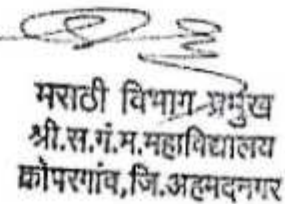 मराठी विभाग प्रमुख
श्री.स.गं.म.महाविद्यालय
कोपरगांव,जि.अहमदनगर